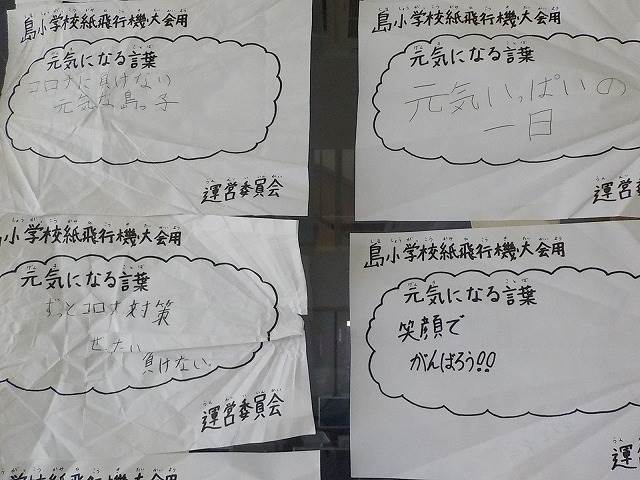 島小学校紙飛行機大会用
元気になる言葉
コロナに負けない
元気な島っ子
運営委員会
島小学校紙飛行機大会用
元気になる言葉
元気いっぱいの
一日
運営
小学校紙飛行機大会用
元気になる言葉
ずっとコロナ対策
ぜったい
負けない
運営委員会
島小学校紙飛行機大会用
元気になる言葉
笑顔で
がんばろう!!
運営
学校紙飛行機大会用